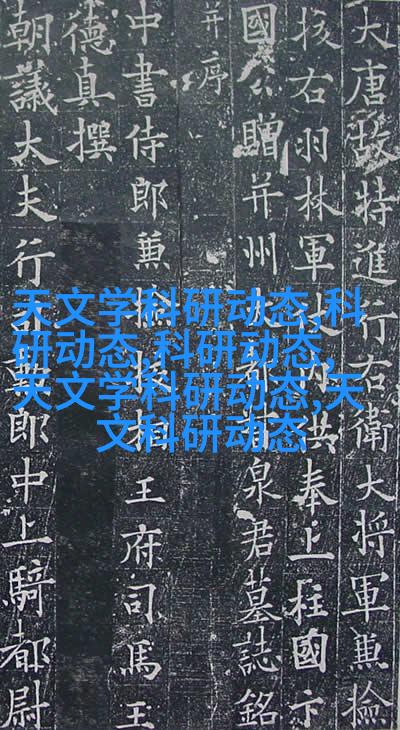 大唐故特進行右衛大將軍兼檢
校右羽林軍仗內供奉上柱國卞
國公贈并州大都督泉君墓誌銘
并序
中書侍郎兼檢校相王府司馬王
德真撰
朝議大夫行司勳郎中上騎都尉
天文学科研动态,科
研动态,科研动态,
天文学科研动态,天
文科研动态